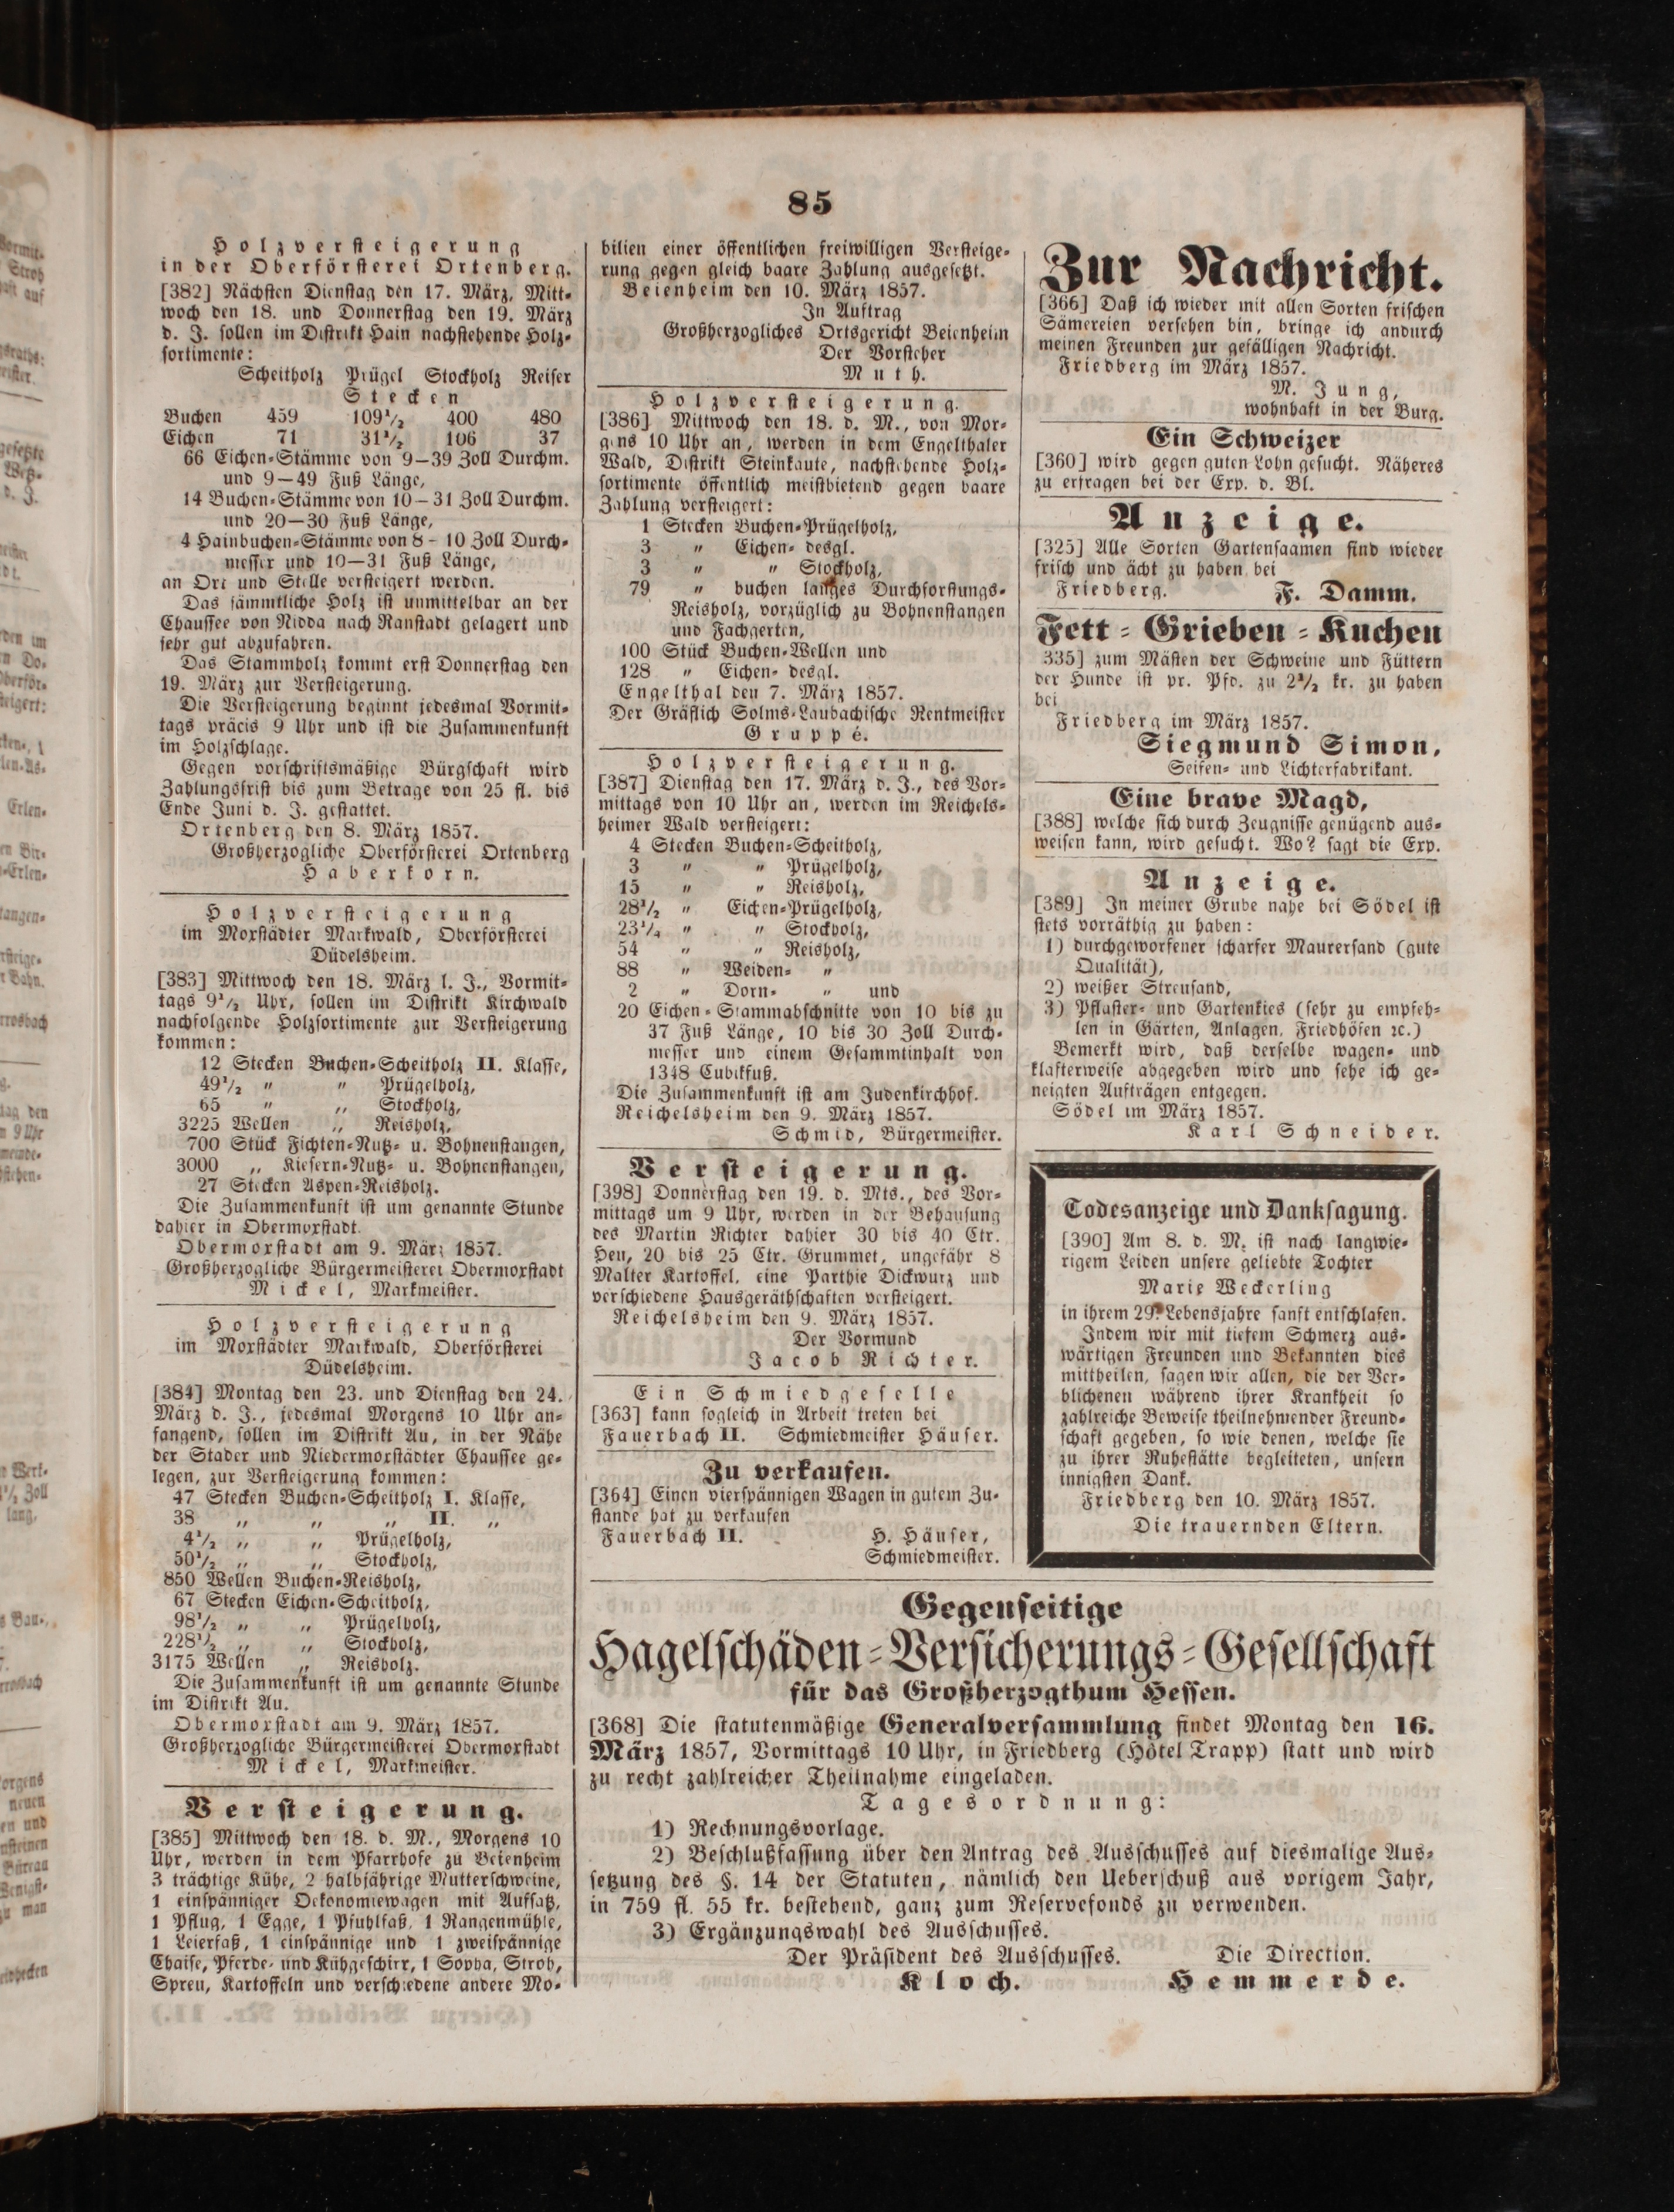 85
Holzversteigerung
in der Oberförsterei Ortenberg.
[382] Nächsten Dienstag den 17. März, Mitt-
woch den 18. und Donnerstag den 19. März
d. J. sollen im Distrikt Hain nachstehende Holz-
sortimente:
Scheitholz Prügel Stockholz Reiser
Stecken
Buchen 459 109½ 400 480
Eichen 71 31½ 106 37
66 Eichen-Stämme von 9—39 Zoll Durchm.
und 9—49 Fuß Länge,
14 Buchen-Stämme von 10—31 Zoll Durchm.
und 20—30 Fuß Länge,
4 Hainbuchen-Stämme von 8-10 Zoll Durch-
messer und 10—31 Fuß Länge,
an Ort und Stelle versteigert werden.
Das sämmtliche Holz ist unmittelbar an der
Chaussee von Nidda nach Ranstadt gelagert und
sehr gut abzufahren.
Das Stammholz kommt erst Donnerstag den
19. März zur Versteigerung.
Die Versteigerung beginnt jedesmal Vormit-
tags präcis 9 Uhr und ist die Zusammenkunft
im Holzschlage.
Gegen vorschriftsmäßige Bürgschaft wird
Zahlungsfrist bis zum Betrage von 25 fl. bis
Ende Juni d. J. gestattet.
Ortenberg den 8. März 1857.
Großherzogliche Oberförsterei Ortenberg
Haberkorn.
Holzversteigerung
im Moxstädter Markwald, Oberförsterei
Düdelsheim.
[383] Mittwoch den 18. März l. J., Vormit-
tags 9½ Uhr, sollen im Distrikt Kirchwald
nachfolgende Holzsortimente zur Versteigerung
kommen:
12 Stecken Buchen-Scheitholz II. Klasse,
49½ " " Prügelholz,
65 " „ Stockholz,
3225 Wellen „ Reisholz,
700 Stück Fichten-Nutz- u. Bohnenstangen,
3000 „ Kiefern-Nutz- u. Bohnenstangen,
27 Stecken Aspen-Reisholz.
Die Zusammenkunft ist um genannte Stunde
dahier in Obermoxstadt.
Obermoxstadt am 9. März 1857.
Großherzogliche Bürgermeisterei Obermoxstadt
Mickel, Markmeister.
Holzversteigerung
im Moxstädter Markwald, Oberförsterei
Düdelsheim.
[384] Montag den 23. und Dienstag den 24.
März d. J., jedesmal Morgens 10 Uhr an-
fangend, sollen im Distrikt Au, in der Nähe
der Stader und Niedermoxstädter Chaussee ge-
legen, zur Versteigerung kommen:
47 Stecken Buchen-Scheitholz I. Klasse,
38 „ „ „ II. „
4½ „ „ Prügelholz,
50½ „ „ Stockholz,
850 Wellen Buchen-Reisholz,
67 Stecken Eichen-Scheitholz,
98½ „ „ Prügelholz,
228½ „ „ Stockholz,
3175 Wellen „ Reisholz.
Die Zusammenkunft ist um genannte Stunde
im Distrikt Au.
Obermoxstadt am 9. März 1857.
Großherzogliche Bürgermeisterei Obermoxstadt
Mickel, Markmeister.
Versteigerung.
[385] Mittwoch den 18. d. M., Morgens 10
Uhr, werden in dem Pfarrhofe zu Beienheim
3 trächtige Kühe, 2 halbjährige Mutterschweine,
1 einspänniger Oekonomiewagen mit Aufsatz,
1 Pflug, 1 Egge, 1 Pfuhlfaß, 1 Rangenmühle,
1 Leierfaß, 1 einspännige und 1 zweispännige
Chaise, Pferde- und Kühgeschirr, 1 Sopha, Stroh,
Spreu, Kartoffeln und verschiedene andere Mo-
bilien einer öffentlichen freiwilligen Versteige-
rung gegen gleich baare Zahlung ausgesetzt.
Beienheim den 10. März 1857.
In Auftrag
Großherzogliches Ortsgericht Beienheim
Der Vorsteher
Muth.
Holzversteigerung.
[386] Mittwoch den 18. d. M., von Mor-
gens 10 Uhr an, werden in dem Engelthaler
Wald, Distrikt Steinkaute, nachstehende Holz-
sortimente öffentlich meistbietend gegen baare
Zahlung versteigert:
1 Stecken Buchen-Prügelholz,
3 " Eichen- desgl.
3 " " Stockholz,
79 " buchen langes Durchforstungs-
Reisholz, vorzüglich zu Bohnenstangen
und Fachgerten,
100 Stück Buchen-Wellen und
128 " Eichen- desgl.
Engelthal den 7. März 1857.
Der Gräflich Solms-Laubachische Rentmeister
Gruppé.
Holzversteigerung.
[387] Dienstag den 17. März d. J., des Vor-
mittags von 10 Uhr an, werden im Reichels-
heimer Wald versteigert:
4 Stecken Buchen-Scheitholz,
3 " " Prügelholz,
15 " " Reisholz,
28½ " Eichen-Prügelholz,
23¼ " " Stockholz,
54 " " Reisholz,
88 " Weiden- "
2 " Dorn- " und
20 Eichen-Stammabschnitte von 10 bis zu
37 Fuß Länge, 10 bis 30 Zoll Durch-
messer und einem Gesammtinhalt von
1348 Cubikfuß.
Die Zusammenkunft ist am Judenkirchhof.
Reichelsheim den 9. März 1857.
Schmid, Bürgermeister.
Versteigerung.
[398] Donnerstag den 19. d. Mts., des Vor-
mittags um 9 Uhr, werden in der Behausung
des Martin Richter dahier 30 bis 40 Ctr.
Heu, 20 bis 25 Ctr. Grummet, ungefähr 8
Malter Kartoffel, eine Parthie Dickwurz und
verschiedene Hausgeräthschaften versteigert.
Reichelsheim den 9. März 1857.
Der Vormund
Jacob Richter.
Ein Schmiedgeselle
[363] kann sogleich in Arbeit treten bei
Fauerbach II. Schmiedmeister Häuser.
Zu verkaufen.
[364] Einen vierspännigen Wagen in gutem Zu-
stande hat zu verkaufen
Fauerbach II. H. Häuser,
Schmiedmeister.
Zur Nachricht.
[366] Daß ich wieder mit allen Sorten frischen
Sämereien versehen bin, bringe ich andurch
meinen Freunden zur gefälligen Nachricht.
Friedberg im März 1857.
M. Jung,
wohnhaft in der Burg.
Ein Schweizer
[360] wird gegen guten Lohn gesucht. Näheres
zu erfragen bei der Exp. d. Bl.
Anzeige.
[325] Alle Sorten Gartensaamen sind wieder
frisch und ächt zu haben bei
Friedberg. F. Damm.
Fett-Grieben-Kuchen
335] zum Mästen der Schweine und Füttern
der Hunde ist pr. Pfd. zu 2½ kr. zu haben
bei
Friedberg im März 1857.
Siegmund Simon,
Seifen- und Lichterfabrikant.
Eine brave Magd,
[388] welche sich durch Zeugnisse genügend aus-
weisen kann, wird gesucht. Wo? sagt die Exp.
Anzeige.
[389] In meiner Grube nahe bei Södel ist
stets vorräthig zu haben:
1) durchgeworfener scharfer Maurersand (gute
Qualität),
2) weißer Streusand,
3) Pflaster- und Gartenkies (sehr zu empfeh-
len in Gärten, Anlagen, Friedhöfen ꝛc.)
Bemerkt wird, daß derselbe wagen- und
klafterweise abgegeben wird und sehe ich ge-
neigten Aufträgen entgegen.
Södel im März 1857.
Karl Schneider.
Todesanzeige und Danksagung.
[390] Am 8. d. M. ist nach langwie-
rigem Leiden unsere geliebte Tochter
Marie Weckerling
in ihrem 29. Lebensjahre sanft entschlafen.
Indem wir mit tiefem Schmerz aus-
wärtigen Freunden und Bekannten dies
mittheilen, sagen wir allen, die der Ver-
blichenen während ihrer Krankheit so
zahlreiche Beweise theilnehmender Freund-
schaft gegeben, so wie denen, welche sie
zu ihrer Ruhestätte begleiteten, unsern
innigsten Dank.
Friedberg den 10. März 1857.
Die trauernden Eltern.
Gegenseitige
Hagelschäden-Versicherungs-Gesellschaft
für das Großherzogthum Hessen.
[368] Die statutenmäßige Generalversammlung findet Montag den 16.
März 1857, Vormittags 10 Uhr, in Friedberg (Hôtel Trapp) statt und wird
zu recht zahlreicher Theilnahme eingeladen.
Tagesordnung:
1) Rechnungsvorlage.
2) Beschlußfassung über den Antrag des Ausschusses auf diesmalige Aus-
setzung des §. 14 der Statuten, nämlich den Ueberschuß aus vorigem Jahr,
in 759 fl. 55 kr. bestehend, ganz zum Reservefonds zu verwenden.
3) Ergänzungswahl des Ausschusses.
Der Präsident des Ausschusses. Die Direction.
Kloch. Hemmerde.